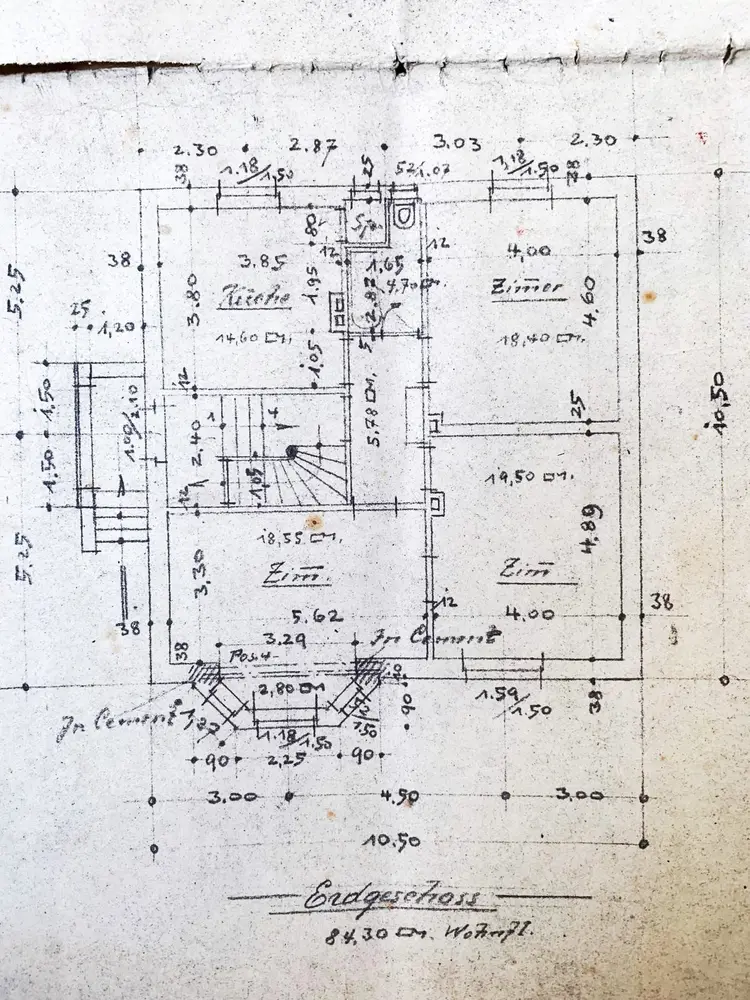 2.30 2.87 3.03 2.30
38 1.18/1.50 25 52/1.07 1,18/1.50 38
80 Sp.
38 12 12 38
3.85 1,65 4,00
5,25 3.80 Küche 1.95 2.87 4,70 □m. Zim̅er 4.60
14,60 □m. 18,40 □m.
25 1,20
1.05 5
12 25 10,50
1,50 1.00/2.10 2.40 5,78 □m.
1,50 1.05 19,50 □m.
12
18,55 □m. 4.89
5.25 3,30 Zim̅. Zim̅
5.62 12 4.00 38
38 3.29 In Cement
38 Pos.4
2,80 □m 90 1.59/1.50 38
In Cement 1,27 1.18/1.50
90 2,25 90
3.00 4.50 3.00
10.50
Erdgeschoss
84,30 □m. Wohnfl.